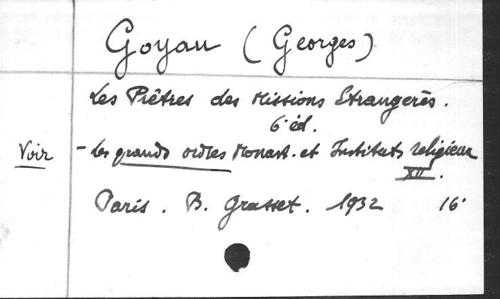 Goyau (Georges)
Les Prêtres des Missions Etrangerès.
6e éd.
Voir - les grands ordres Monast. et Instituts religieux
XII.
Paris. B. Grasset. 1932 16°